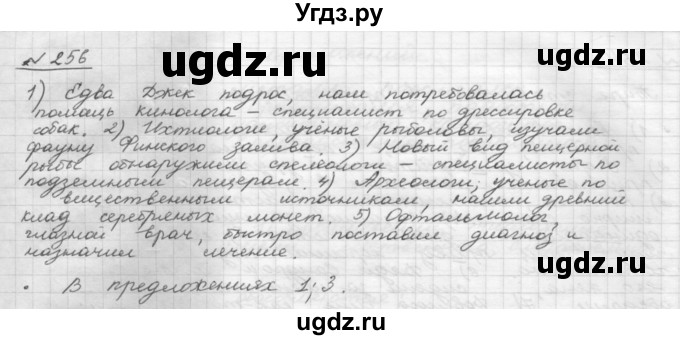 Угдз.ру
№ 256
1) Едва Джек подрос, нам потребовалась
помощь кинолога – специалист по дрессировке
собак. 2) Ихтиологи, учёные рыболовы, изучали
фауну Финского залива. 3) Новый вид пещерной
рыбы обнаружили спелеологи – специалисты по
подземным пещерам. 4) Археологи, ученые по
вещественным источникам, нашли древний
клад серебряных монет. 5) Офтальмолог,
глазной врач, быстро поставил диагноз и
назначил лечение.
• В предложениях 1; 3.
ugdz.ru
ugdz.ru
ugdz.ru
ugdz.ru
ugdz.ru
ugdz.ru
ugdz.ru
ugdz.ru